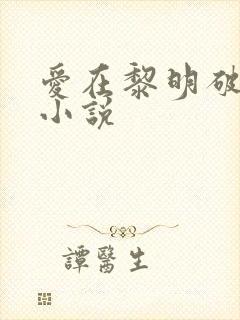 愛在黎明破
小說
譚醫生